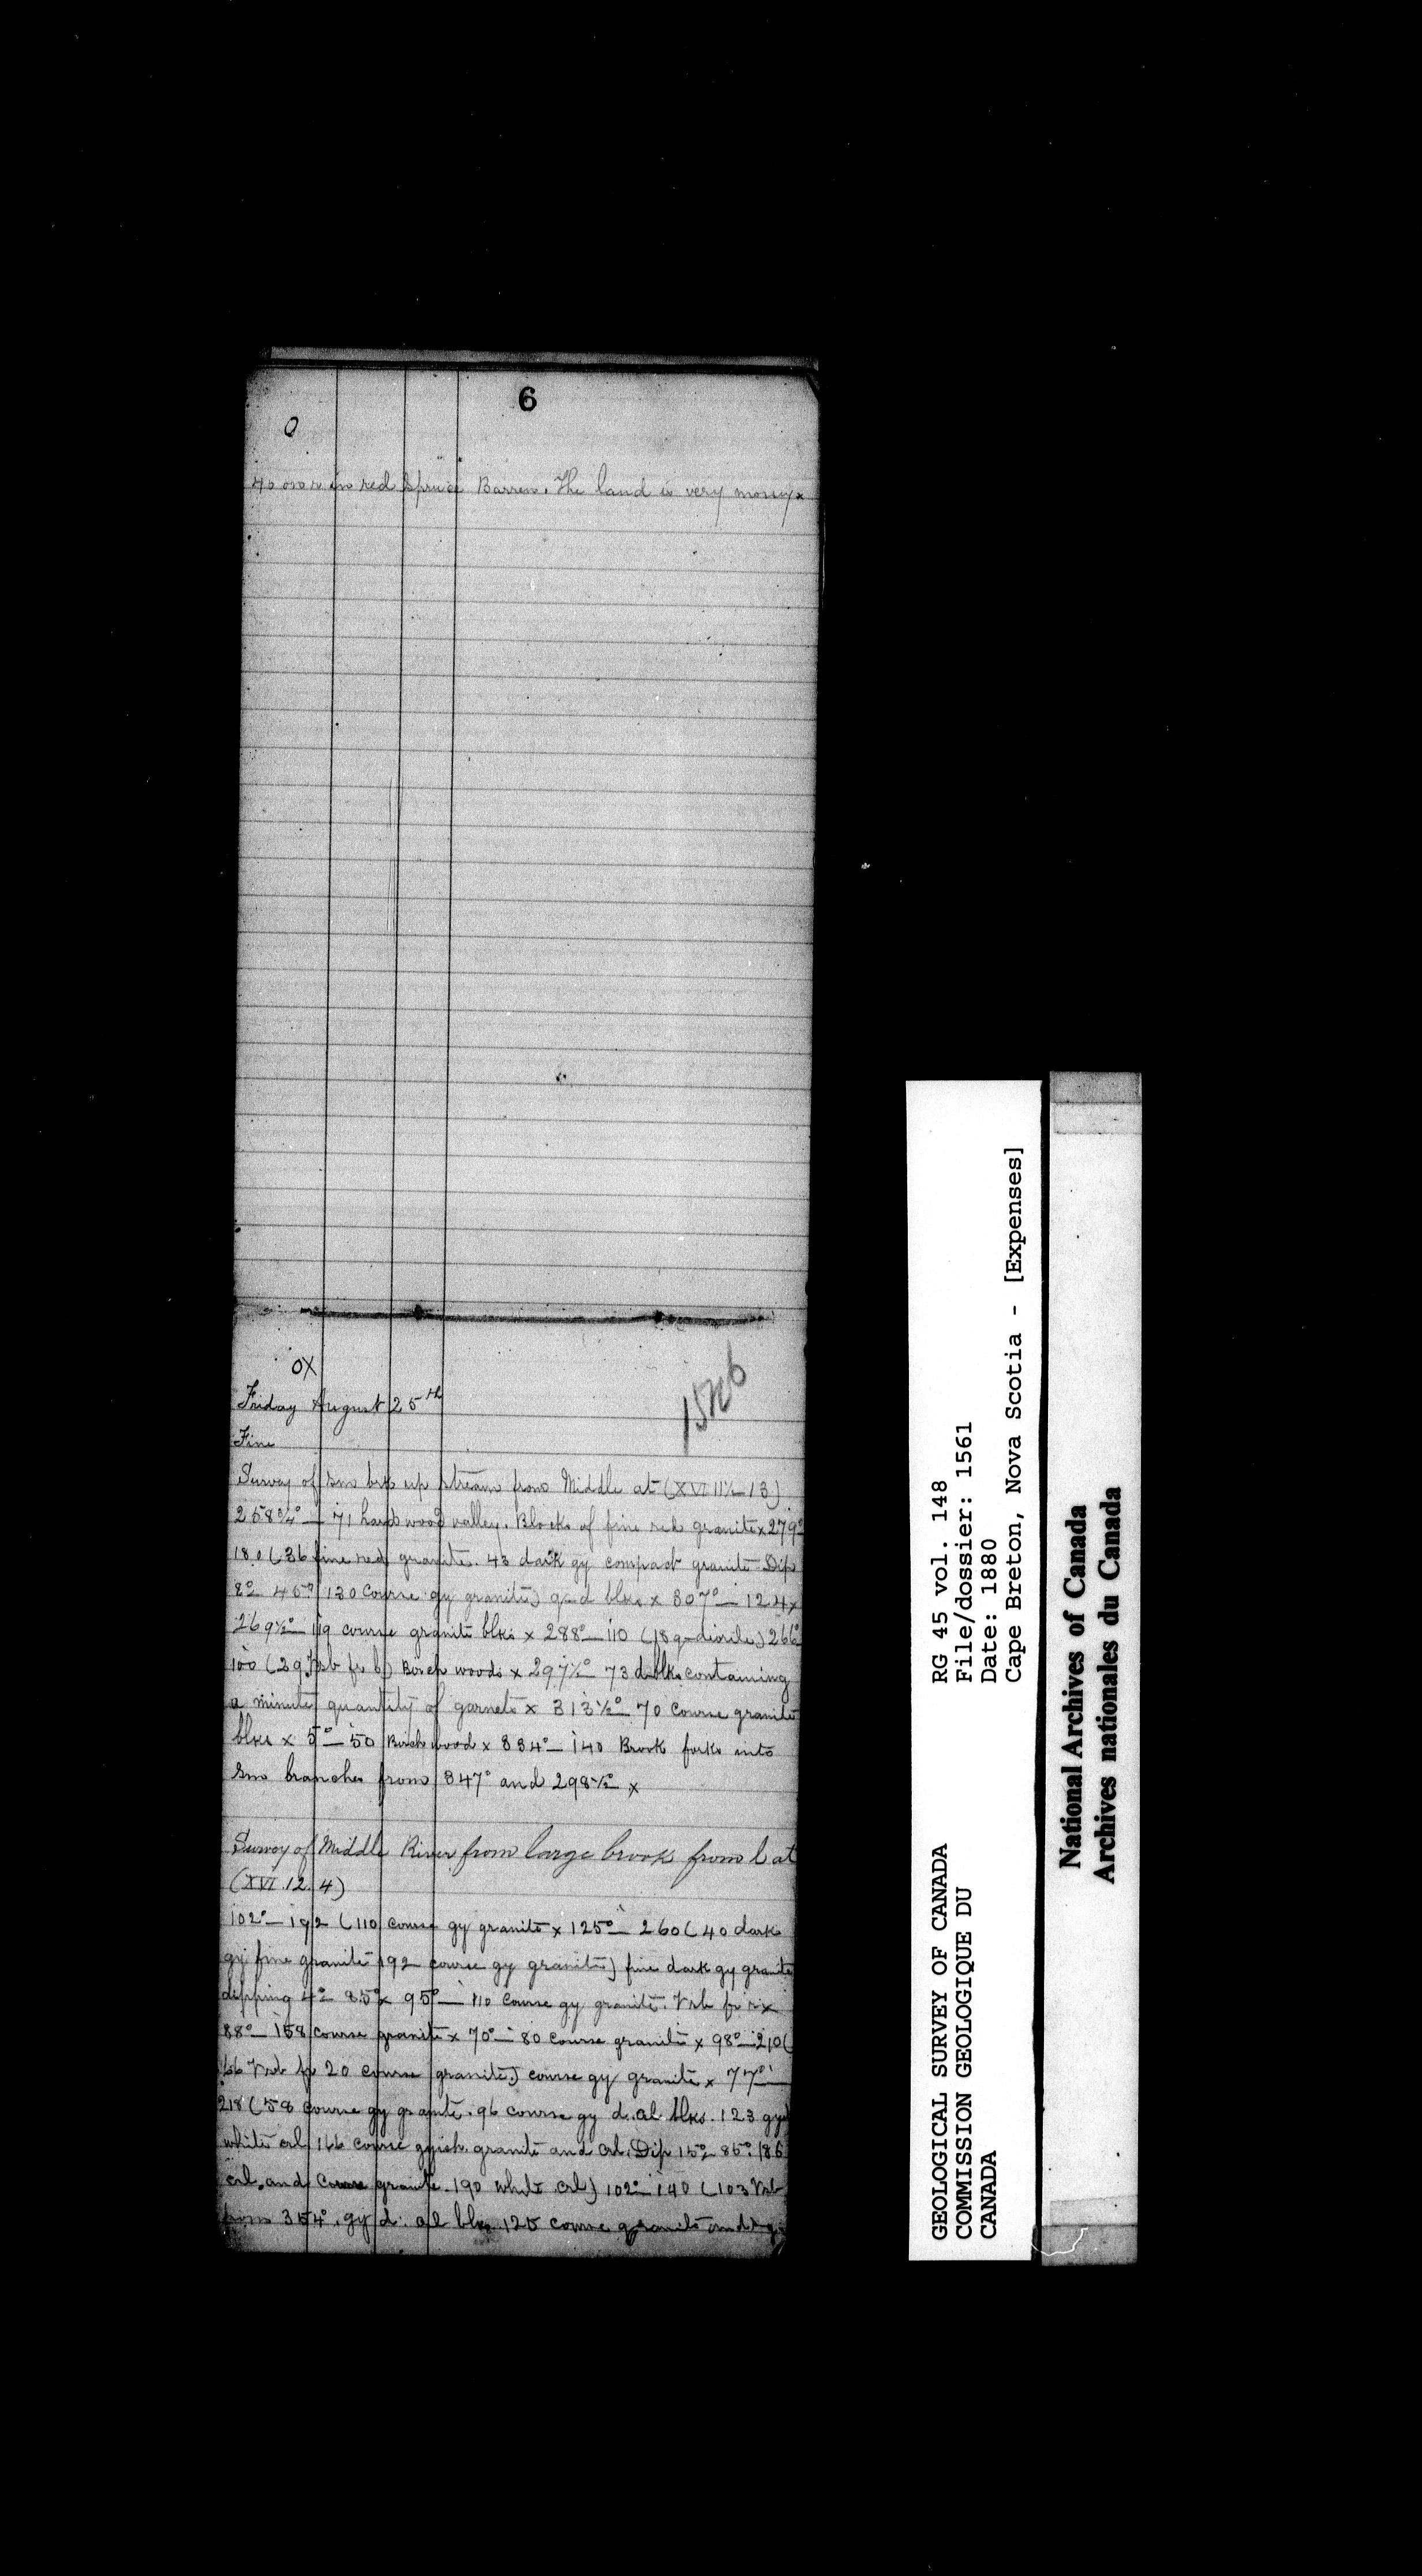 6
0
in red Spruce Barren. The land is very mossy x
OX
Friday August 25th
Fine
Survey of sm brk up stream from Middle at (XVI 11½ - 13)
258¾° — 71 hardwood valley. Blocks of fine red granite x 279°
180 (36 fine red granite. 43 dark gy compact granite Dip
8° 45° 130 course gy granite) q-d blks x 307° — 124 x
269½° — 119 course granite blks x 288° — 110 (18 q-diorite) 266°
100 (29 Vsb fr l) Birch woods x 297½° 73 d blks containing
a minute quantity of garnets x 313½° 70 course granite
blks x 5° — 50 Birch wood x 334° — 140 Brook forks into
sm branches from 347° and 298½° x
Survey of Middle River from large brook from l at
(XVI. 12. 4)
102° — 192 (110 course gy granite x 125° — 260 (40 dark
gy fine granite 192 course gy granite) fine dark gy granite
dipping 4° 85° x 95° — 110 course gy granite. Vsb fr r x
88° — 158 course granite x 70° — 80 course granite x 98° — 210 (
66 Vsb fr 20 course granite.) course gy granite x 77° —
218 (58 course gy granite. 96 course gy d. al blks. 123 gy
white crl 166 course gyish granite and crl. Dip 15° 85° 186
crl. and Course granite. 190 white crl) 102° — 140 (103 Vsb
from 354°. gy d. al blks 125 course granite and
GEOLOGICAL SURVEY OF CANADA
COMMISSION GEOLOGIQUE DU
CANADA
RG 45 vol. 148
File/dossier: 1561
Date: 1880
Cape Breton, Nova Scotia - [Expenses]
National Archives of Canada
Archives nationales du Canada